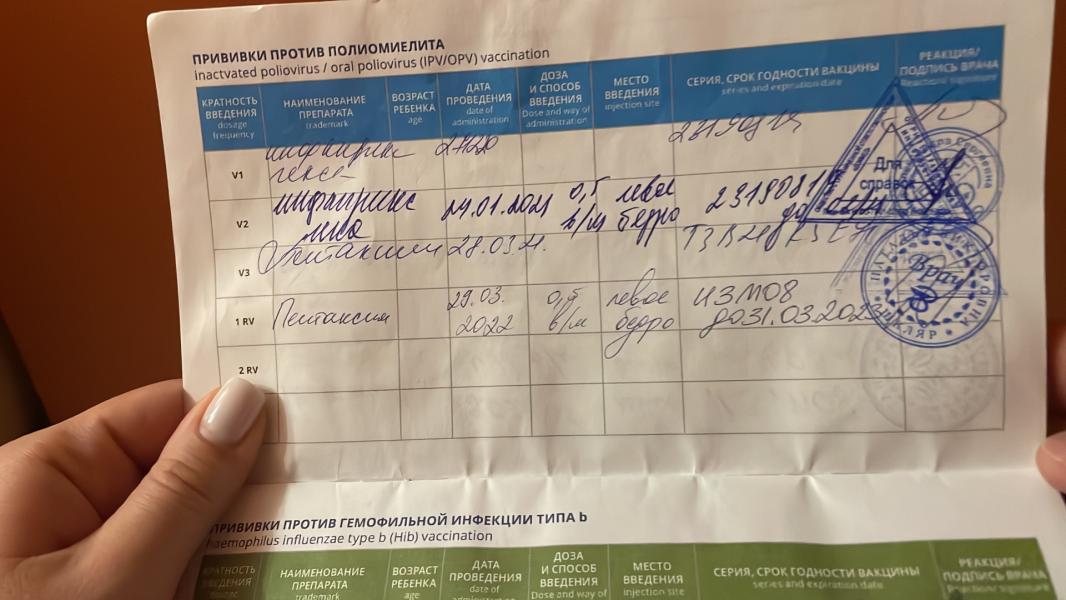 ПРИВИВКИ ПРОТИВ ПОЛИОМИЕЛИТА
inactvated poliovirus / oral poliovirus (IPV/OPV) vaccination
КРАТНОСТЬ ВВЕДЕНИЯ
dosage frequency
НАИМЕНОВАНИЕ ПРЕПАРАТА
trademark
ВОЗРАСТ РЕБЕНКА
age
ДАТА ПРОВЕДЕНИЯ
date of administration
ДОЗА И СПОСОБ ВВЕДЕНИЯ
Dose and way of administration
МЕСТО ВВЕДЕНИЯ
injection site
СЕРИЯ, СРОК ГОДНОСТИ ВАКЦИНЫ
series and expiration date
РЕАКЦИЯ/ ПОДПИСЬ ВРАЧА
V1
инфанрикс
гекса
V2
инфанрикс 29.01.2021 0,5 левое
в/м бедро
V3 Пентаксим 28.03.21.
1 RV Пентаксим 29.03. 2022 0,5 в/м левое бедро
до 31.03.2023
2 RV
Для справок
Врач
ШКЛЯР
ПРИВИВКИ ПРОТИВ ГЕМОФИЛЬНОЙ ИНФЕКЦИИ ТИПА b
haemophilus influenzae type b (Hib) vaccination
КРАТНОСТЬ ВВЕДЕНИЯ
НАИМЕНОВАНИЕ ПРЕПАРАТА
trademark
ВОЗРАСТ РЕБЕНКА
age
ДАТА ПРОВЕДЕНИЯ
date of
ДОЗА И СПОСОБ ВВЕДЕНИЯ
Dose and way of
МЕСТО ВВЕДЕНИЯ
injection site
СЕРИЯ, СРОК ГОДНОСТИ ВАКЦИНЫ
series and expiration date
РЕАКЦИЯ/ ПОДПИСЬ ВРАЧА